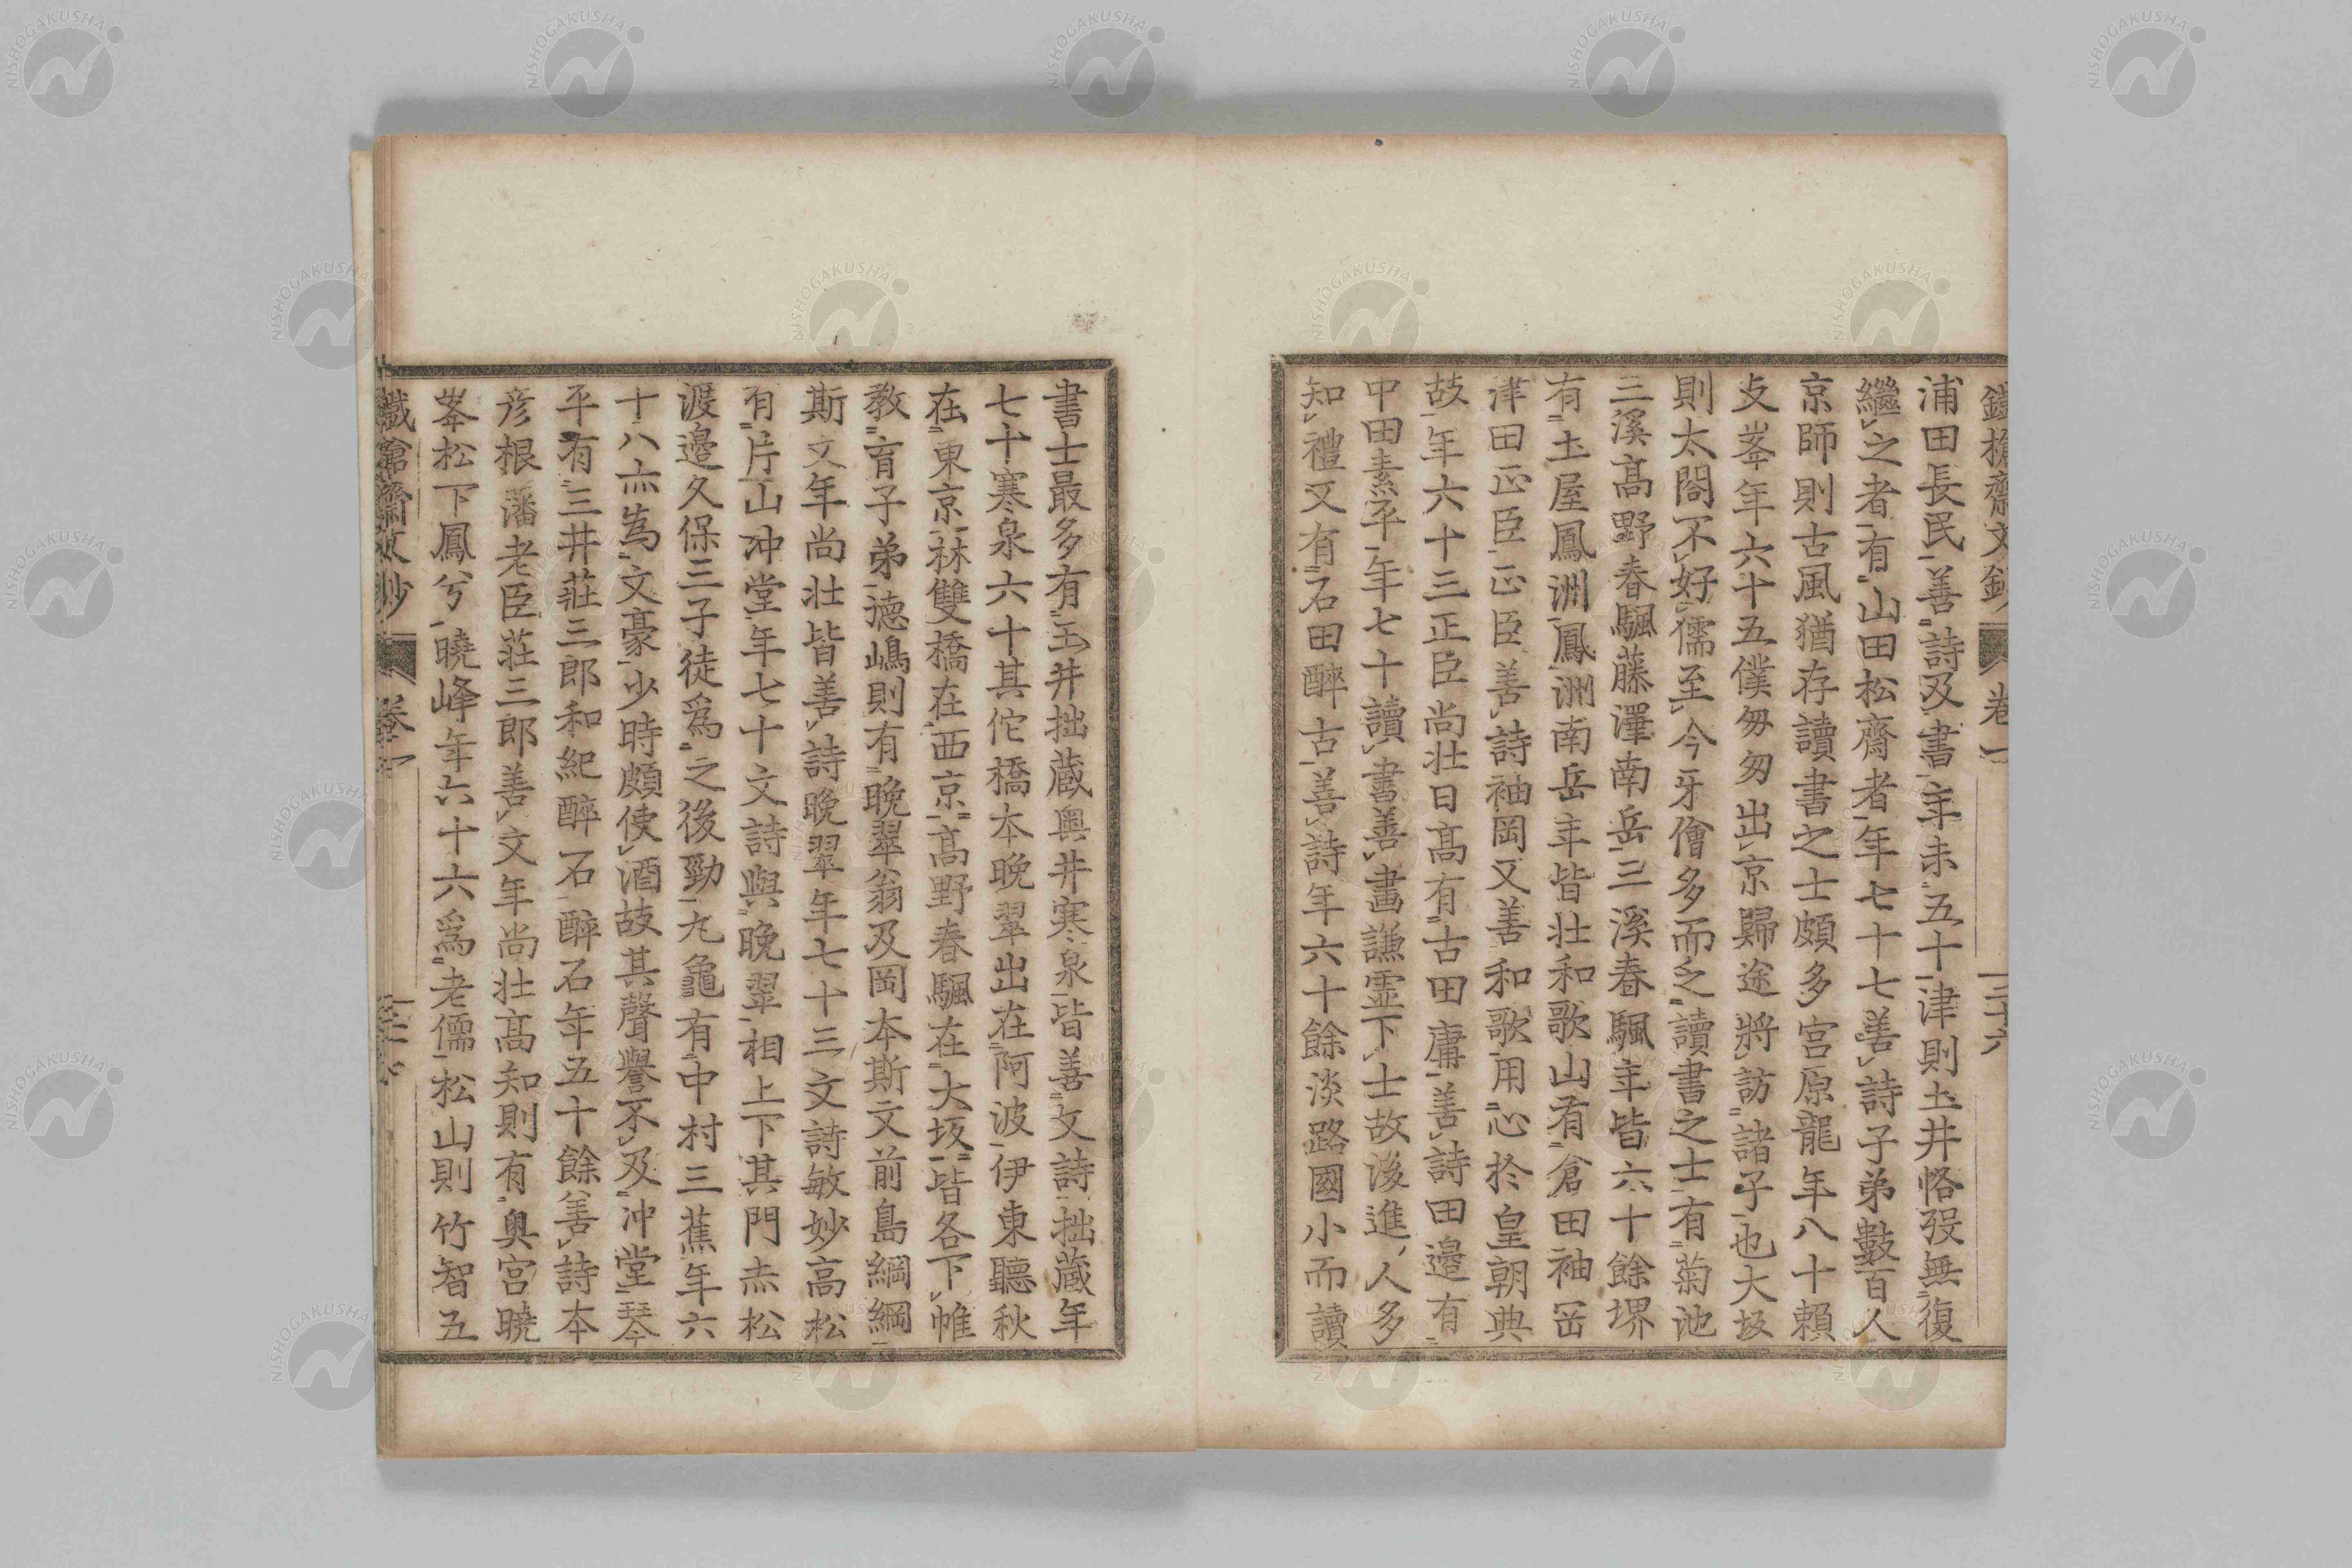 鐵槍齋文鈔 卷一 三十六
浦田長民善詩及書年未五十津則土井恪歿無復
繼之者有山田松齋者年七十七善詩子弟數百人
京師則古風猶存讀書之士頗多宮原龍年八十賴
支峯年六十五僕匆匆出京歸途將訪諸子也大坂
則太閤不好儒至今牙儈多而乏讀書之士有菊池
三溪高野春颿藤澤南岳三溪春颿年皆六十餘堺
有土屋鳳洲鳳洲南岳年皆壯和歌山有倉田袖岡
津田正臣正臣善詩袖岡又善和歌用心於皇朝典
故年六十三正臣尚壯日高有古田庸善詩田邉有
中田素平年七十讀書善畫謙虛下士故後進人多
知禮又有石田醉古善詩年六十餘淡路國小而讀
書士最多有玉井拙藏奥井寒泉皆善文詩拙藏年
七十寒泉六十其佗橋本晩翠出在阿波伊東聽秋
在東京林雙橋在西京高野春颿在大坂皆各下帷
教育子弟德嶋則有晩翠翁及岡本斯文前島綱綱
斯文年尚壯皆善詩晩翠年七十三文詩敏妙高松
有片山冲堂年七十文詩與晩翠相上下其門赤松
渡邉久保三子徒爲之後勁九龜有中村三蕉年六
十八亦為文豪少時頗使酒故其聲譽不及冲堂琴
平有三井莊三郎和紀醉石醉石年五十餘善詩本
彦根藩老臣莊三郎善文年尚壯高知則有奥宮曉
峯松下鳳兮曉峰年六十六爲老儒松山則竹智五
鐵槍齋文鈔 卷一
NISHOGAKUSHA